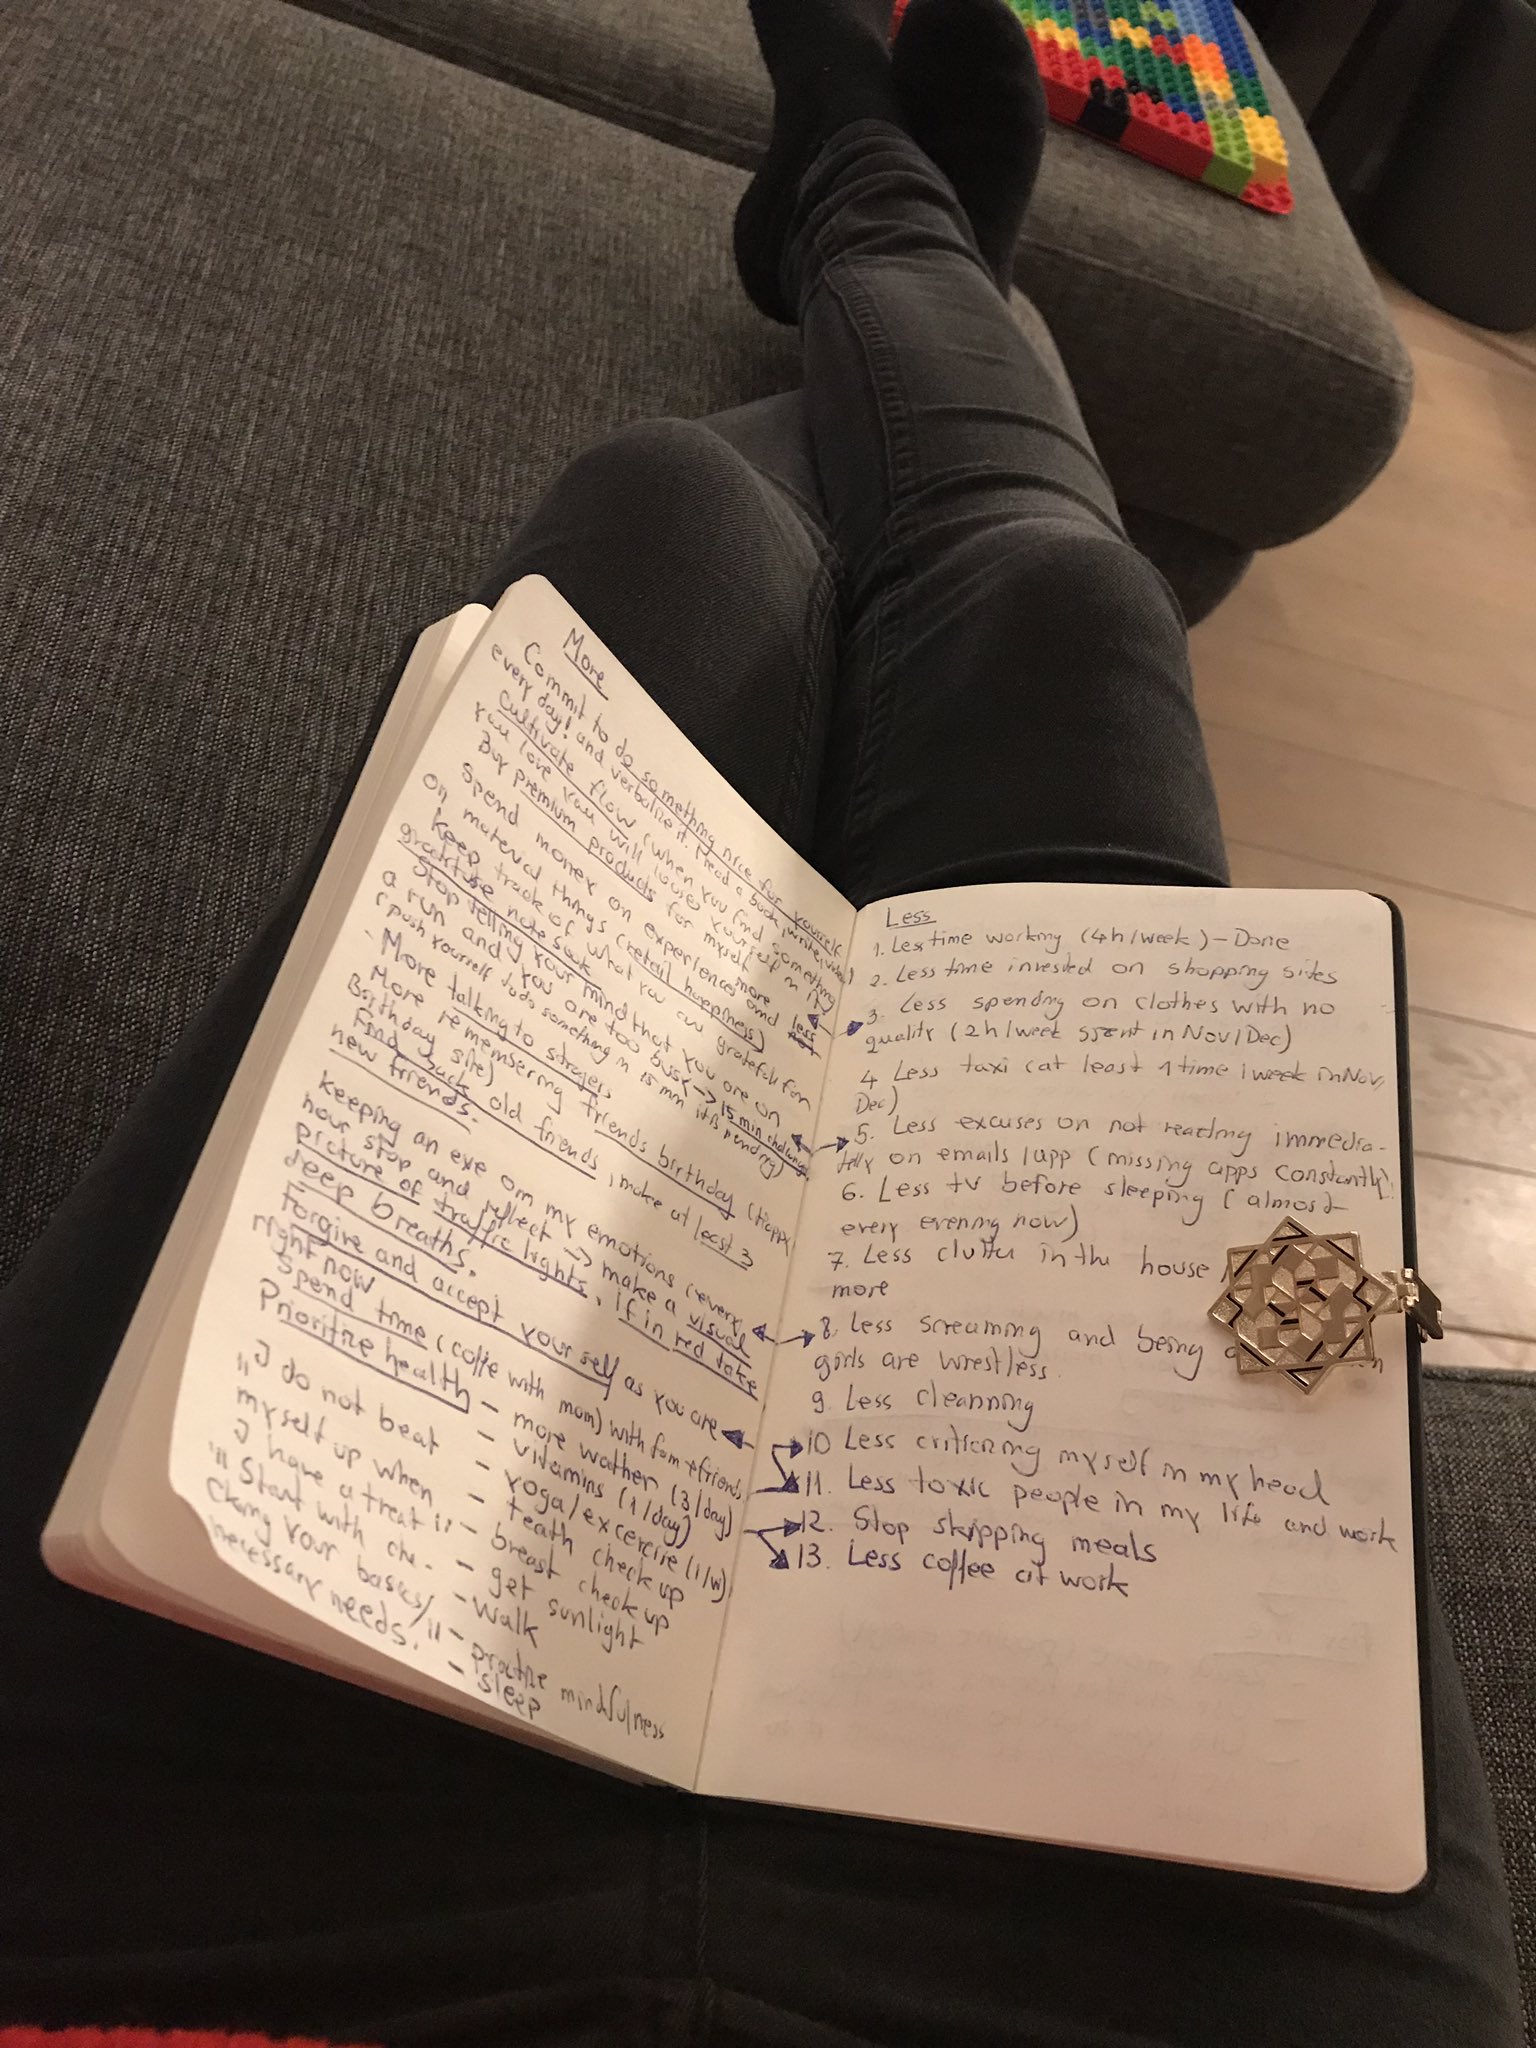 More
Commit to do something nice for yourself
every day! and verbalize it. (read a book, write, video)
Cultivate flow (when you find something
you love you will loose yourself in it)
Buy premium products for myself
Spend money on experiences and less
on material things (retail happiness)
keep track of what you are gratefull for
gratitute notebook
Stop telling your mind that you are on
a run and you are too busy → 15 min challenge
(push yourself to do something in 15 min it is pending)
- More talking to stragers
More remembering friends birthday (Happy
Birthday site)
Find back old friends, make at least 3
new friends.
keeping an eye om my emotions (every
hour stop and reflect → make a visual
picture of traffic lights, if in red take
deep breaths.
Forgive and accept your self as you are
right now
Spend time (coffe with mom) with fam &friends
Prioritize health - more wather (3/day)
- vitamins (1/day)
- yoga/excercise (1/w)
- teath check up
- breast check up
- get sunlight
- Walk
- practize mindfulness
- sleep
"I do not beat
myself up when
I have a treat"
"Start with
your basics/
necessary needs."
Less
1. Less time working (4h/week) - Done
2. Less time invested on shopping sites
3. Less spending on clothes with no
quality (2h/week spent in Nov/Dec)
4 Less taxi (at least 1 time/week in Nov,
Dec)
5. Less excuses on not reacting immedia-
telly on emails/app (missing apps constantly)
6. Less tv before sleeping (almost
every evening now)
7. Less clutter in the house
more
8. Less screaming and being
girls are wrestless.
9. Less cleanning
10 Less criticing myself in my head
11. Less toxic people in my life and work
12. Stop skipping meals
13. Less coffee at work